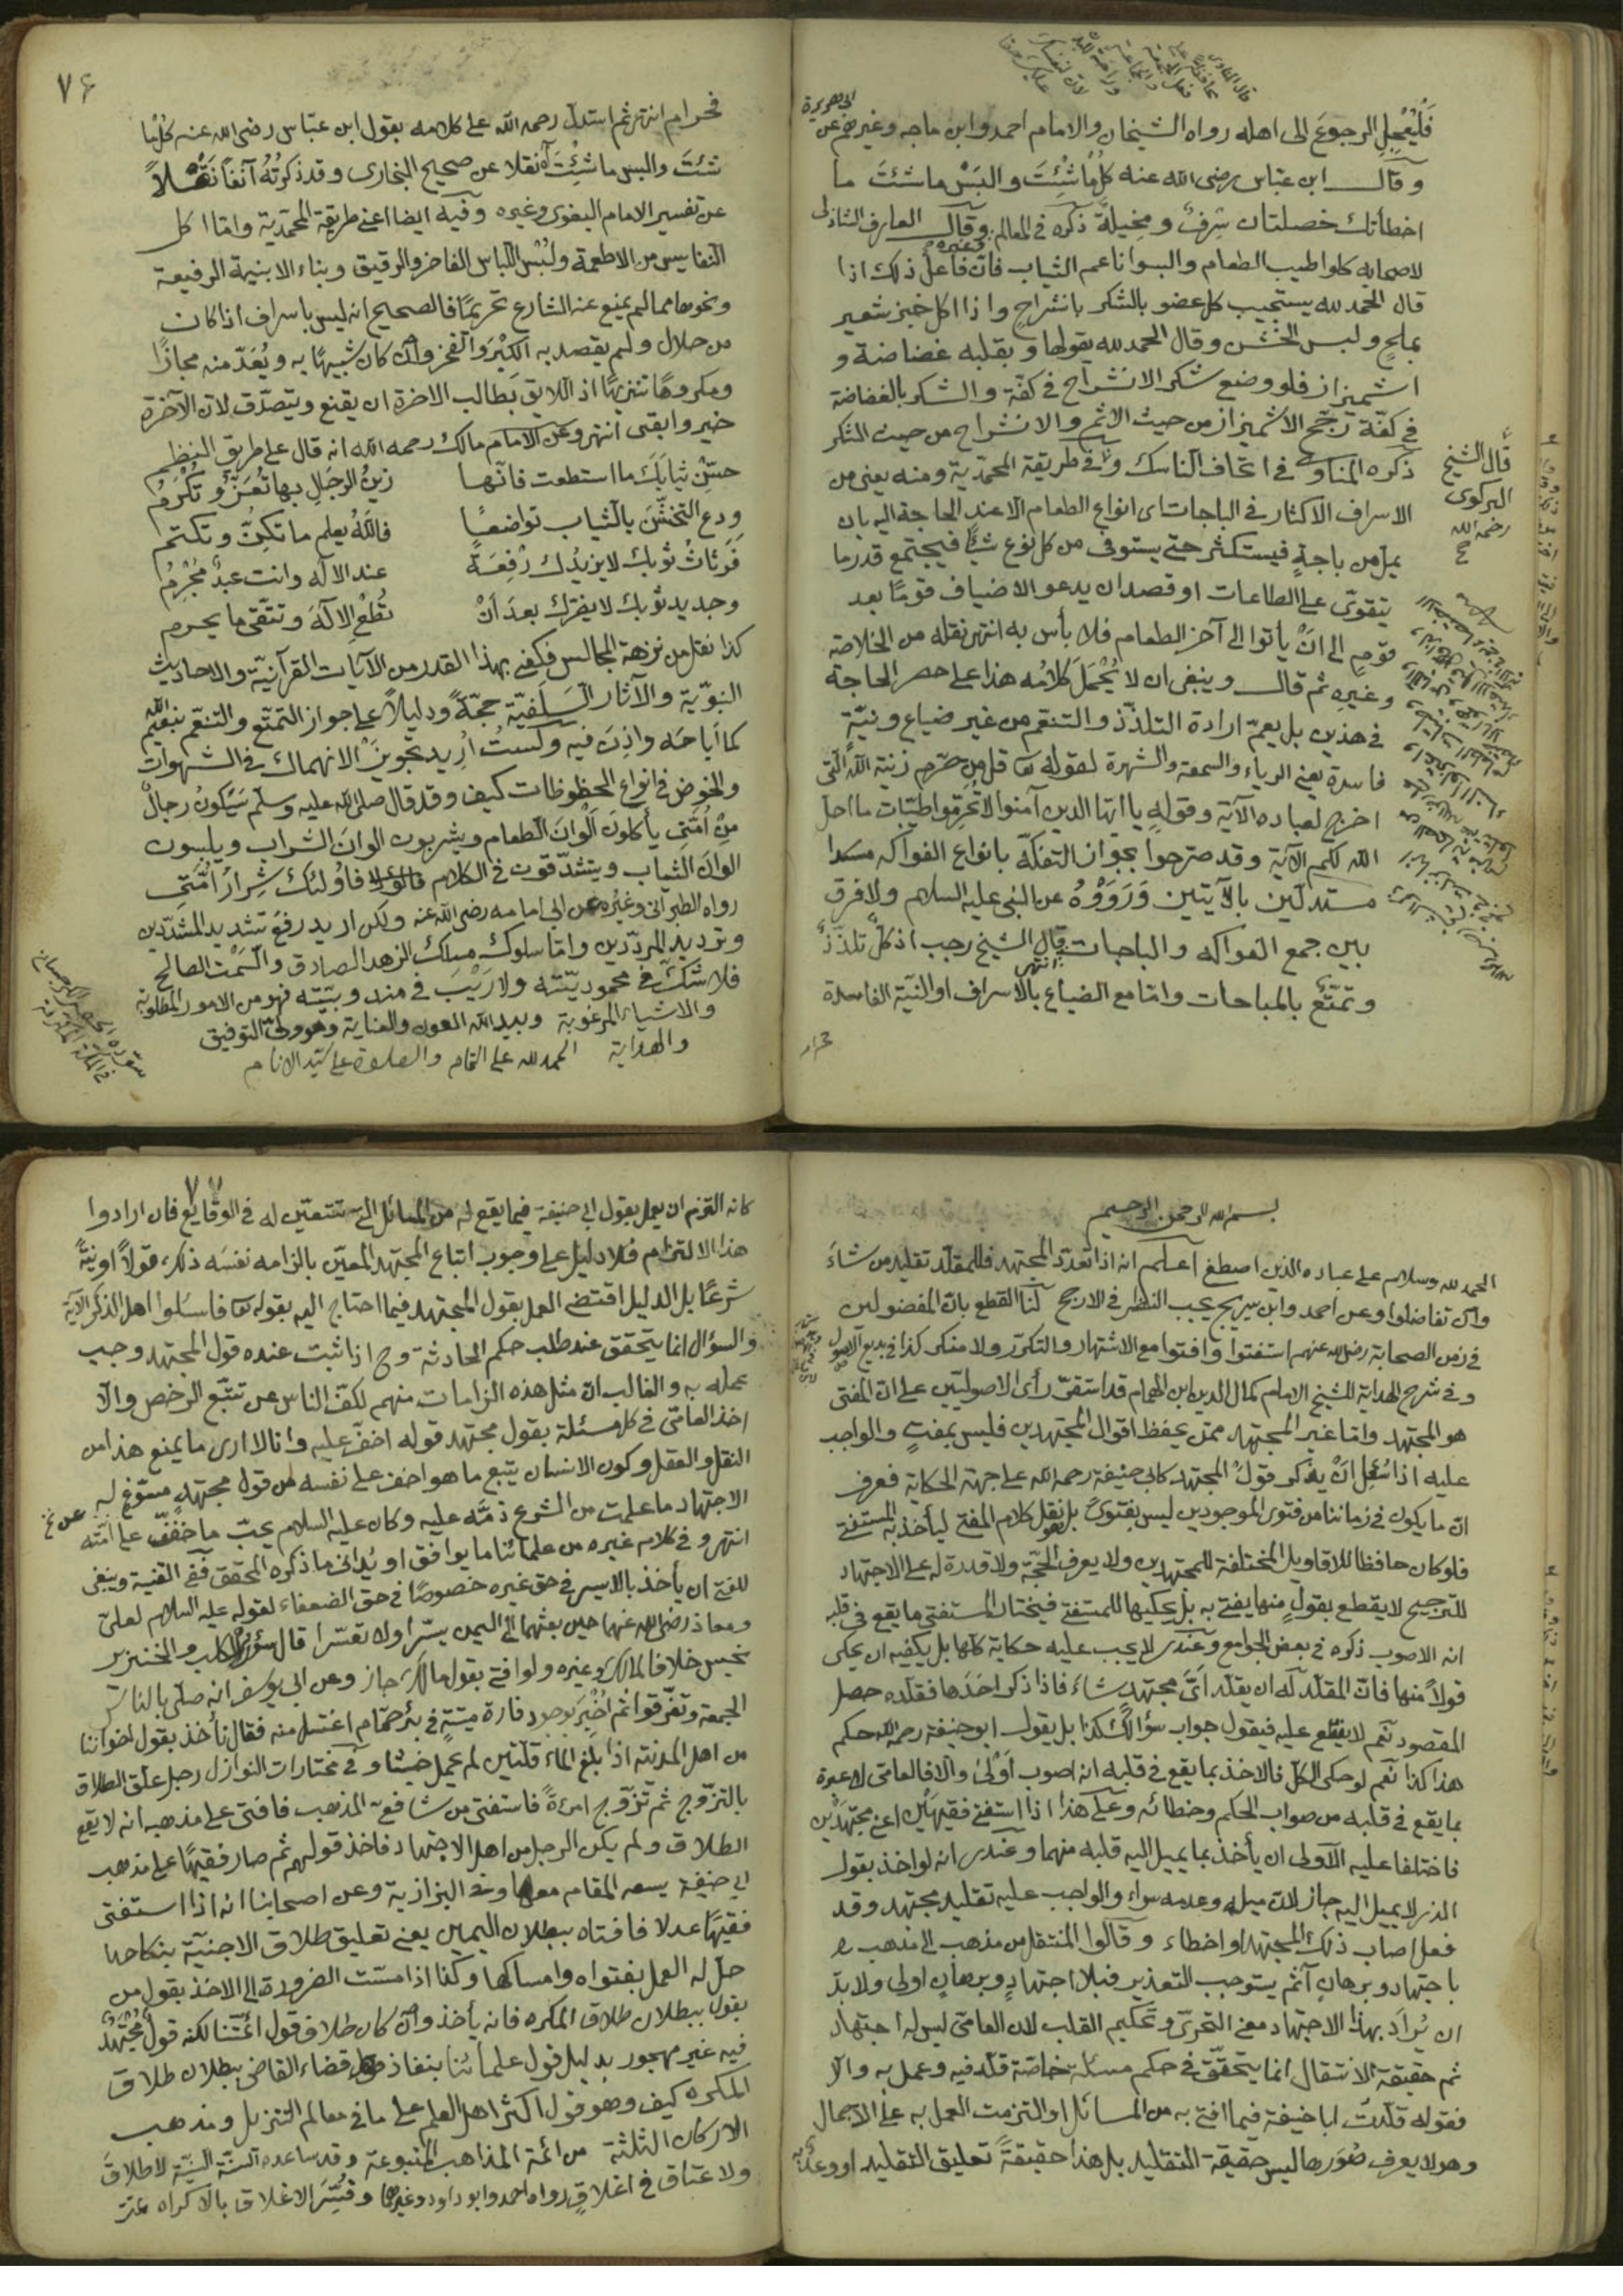 فليعجل الرجوع الى اهله رواه الشيخان والامام احمد وابن ماجه وغيرهم عن ابى هريرة
وقال ابن عباس رضى الله عنه كل ما شئت والبس ما شئت ما
اخطأتك خصلتان سرف ومخيلة ذكره فى المعالم وغيره وقال العارف الشاذلى
لاصحابه كلوا طيب الطعام والبسوا ناعم الثياب فان فاعل ذلك اذا
قال الحمد لله يستجيب كل عضو بالشكر بانشراح واذا اكل خبز شعير
بملح ولبس الخشن وقال الحمد لله يقولها وبقلبه غضاضة و
اشميزاز فلو وضع شكر الانشراح فى كفة والشكر بالغضاضة
فى كفة ترجح الاشميزاز من حيث الاثم والانشراح من حيث الشكر
ذكره المناوى فى اتحاف الناسك وفى طريقة المحمدية ومنه يعنى من
الاسراف الاكثار فى الباجات اى انواع الطعام الا عند الحاجة اليه بان
يمل من باجة فيستكثر حتى يستوفى من كل نوع شيئا فيجتمع قدر ما
يتقوى على الطاعات او قصد ان يدعو الاضياف قوما بعد
قوم الى ان يأتوا الى آخر الطعام فلا بأس به انتهى نقله من الخلاصة
وغيره ثم قال وينبغى ان لا يحمل كلامه هذا على حصر الحاجة
فى هذين بل يعم ارادة التلذذ والتنعم من غير ضياع ونية
فاسدة يعنى الرياء والسمعة والشهرة لقوله تعا قل من حرم زينة الله التى
اخرج لعباده الآية وقوله يا ايها الذين آمنوا لا تحرموا طيبات ما احل
الله لكم الآية وقد صرحوا بجواز التفكه بانواع الفواكه مسكدا
مستدلين بالآيتين ورووه عن النبى عليه السلام ولا فرق
بين جمع الفواكه والباجات انتهى قال الشيخ رجب اذ كل تلذذ
وتمتع بالمباحات واما مع الضياع بالاسراف او النية الفاسدة
فحرام
قال الشيخ
البركوى
رحمه الله
٧٤
فحرام انتهى ثم استدل رحمه الله على كلامه بقول ابن عباس رضى الله عنه كل ما
شئت والبس ما شئت آه نقلا عن صحيح البخارى وقد ذكرته آنفا نقلا
عن تفسير الامام البغوى وغيره وفيه ايضا اعنى طريقة المحمدية واما اكل
النفايس من الاطعمة ولبس اللباس الفاخر والرقيق وبناء الابنية الرفيعة
ونحوها مما لم يمنع عنه الشارع تحريما فالصحيح انه ليس باسراف اذا كان
من حلال ولم يقصد به الكبر والفخر وان كان شبيها به ويعد منه مجازا
ومكروها تنزيها اذ اللايق بطالب الاخرة ان يقنع ويتصدق لان الآخرة
خير وابقى انتهى وعن الامام مالك رحمه الله انه قال على طريق النظم
حسّن ثيابك ما استطعت فانها زين الرجال بها تعز وتكرم
ودع التخشن بالثياب تواضعا فالله يعلم ما تكن وتكتم
فرثاث ثوبك لا يزيدك رفعة عند الاله وانت عبد مجرم
وجديد ثوبك لا يضرك بعد ان تطع الاله وتتقى ما يحرم
كذا نقل من نزهة المجالس فكفى بهذا القدر من الآيات القرآنية والاحاديث
النبوية والآثار السلفية حجة ودليلا على جواز التمتع والتنعم بنعيم الله
كما اباحه واذن فيه ولست اريد تجويز الانهماك فى الشهوات
والخوض فى انواع المحظوظات كيف وقد قال صلى الله عليه وسلم سيكون رجال
من امتى يأكلون الوان الطعام ويشربون الوان الشراب ويلبسون
الوان الثياب ويتشدقون فى الكلام فاولئك شرار امتى
رواه الطبرانى وغيره عن ابى امامه رضى الله عنه ولكن اريد رفع تشديد المشددين
وترديد المرددين واما سلوك مسلك الزهد الصادق والسمت الصالح
فلا شك فى محموديته ولا ريب فى فهو من الامور المطلوبة
والاشياء المرغوبة وبيد الله العون والعناية وهو ولى التوفيق
والهداية الحمد لله على التمام والصلوة على سيد الانام
بسم الله الرحمن الرحيم
الحمد لله وسلام على عباده الذين اصطفى اعلم انه اذا تعدد المجتهد فللمقلد تقليد من شاء
وان تفاضلوا وعن احمد وابن سريج يجب النظر فى الارجح لنا القطع بان المفضولين
فى زمن الصحابة رضى الله عنهم استفتوا وافتوا مع الاشتهار والتكرر ولا منكر كذا فى بديع الاصول
وفى شرح الهداية للشيخ الامام كمال الدين ابن الهمام قد استقر رأى الاصوليين على ان المفتى
هو المجتهد واما غير المجتهد ممن يحفظ اقوال المجتهدين فليس بمفت والواجب
عليه اذا سئل ان يذكر قول المجتهد كابى حنيفة رحمه الله على جهة الحكاية فعرف
ان ما يكون فى زماننا من فتوى الموجودين ليس بفتوى بل هو نقل كلام المفتى ليأخذ به المستفتى
فلو كان حافظا للاقاويل المختلفة للمجتهدين ولا يعرف الحجة ولا قدرة له على الاجتهاد
للترجيح لا يقطع بقول منها يفتى به بل يحكيها للمستفتى فيختار المستفتى ما يقع فى قلبه
انه الاصوب ذكره فى بعض الجوامع وعندى لا يجب عليه حكاية كلها بل يكفيه ان يحكى
قولا منها فان المقلد له ان يقلد اى مجتهد شاء فاذا ذكر احدها فقلده حصل
المقصود نعم لا يقطع عليه فيقول جواب سؤالك كذا بل يقول ابو حنيفة رحمه الله حكم
هذا كذا نعم لو حكى الكل فالاخذ بما يقع فى قلبه انه اصوب اولى والا فالعامى لا عبرة
بما يقع فى قلبه من صواب الحكم وخطائه وعلى هذا اذا استفتى فقيهين اعنى مجتهدين
فاختلفا عليه الاولى ان يأخذ بما يميل اليه قلبه منهما وعندى انه لو اخذ بقول
الذى لا يميل اليه جاز لان ميله وعدمه سواء والواجب عليه تقليد مجتهد وقد
فعل اصاب ذلك المجتهد او اخطاء وقالوا المنتقل من مذهب الى مذهب
باجتهاد وبرهان آثم يستوجب التعذير فبلا اجتهاد وبرهان اولى ولا بد
ان يراد بهذا الاجتهاد معنى التحرى وتحكيم القلب لان العامى ليس له اجتهاد
ثم حقيقة الانتقال انما يتحقق فى حكم مسئلة خاصة قلد فيه وعمل به والا
فقوله قلدت ابا حنيفة فيما افتى به من المسائل او التزمت العمل به على الاجمال
وهو لا يعرف صورها ليس حقيقة التقليد بل هذا حقيقة تعليق التقليد او وعد به
٧٧
كانه التزم ان يعمل بقول ابى حنيفة فيما يقع له من المسائل التى تتعين له فى الوقايع فان ارادوا
هذا الالتزام فلا دليل على وجوب اتباع المجتهد المعين بالزامه نفسه ذلك قولا او نية
شرعا بل الدليل اقتضى العمل بقول المجتهد فيما احتاج اليه بقوله تعا فاسئلوا اهل الذكر الآية
والسؤال انما يتحقق عند طلب حكم الحادثة وح اذا ثبت عنده قول المجتهد وجب
عمله به والغالب ان مثل هذه الزامات منهم لكف الناس عن تتبع الرخص والا
اخذ العامى فى كل مسئلة بقول مجتهد قوله اخف عليه وانا لا ادرى ما يمنع هذا من
النقل والعقل وكون الانسان يتبع ما هو اخف على نفسه من قول مجتهد مسوغ له
الاجتهاد ما علمت من الشرع ذمه عليه وكان عليه السلام يحب ما خفف على امته
انتهى وفى كلام غيره من علمائنا ما يوافق او يدانى ما ذكره المحقق ففى القنية وينبغى
للمفتى ان يأخذ بالايسر فى حق غيره خصوصا فى حق الضعفاء لقوله عليه السلام لعلى
ومعاذ رضى الله عنهما حين بعثهما الى اليمن يسرا ولا تعسرا قال سؤر الكلب والخنزير
نجس خلافا لمالك وغيره ولو افتى بقول مالك جاز وعن ابى يوسف انه صلى بالناس
الجمعة وتفرقوا ثم اخبر بوجود فارة ميتة فى بئر حمام اغتسل منه فقال نأخذ بقول اخواننا
من اهل المدينة اذا بلغ الماء قلتين لم يحمل خبثا وفى مختارات النوازل رجل علق الطلاق
بالتزوج ثم تزوج امرءة فاستفتى من شافعى المذهب فافتى على مذهبه انه لا يقع
الطلاق ولم يكن الرجل من اهل الاجتهاد فاخذ قولهم ثم صار فقيها على مذهب
ابى حنيفة يسعه المقام معها وفى البزازية وعن اصحابنا انه اذا استفتى
فقيها عدلا فافتاه ببطلان اليمين يعنى تعليق طلاق الاجنبية بنكاحها
حل له العمل بفتواه وامساكها وكذا اذا مست الضرورة الى الاخذ بقول من
يقول ببطلان طلاق المكره فانه يأخذ وان كان خلاف قول ائمتنا لكنه قول مجتهد
فيه غير مهجور بدليل قول علمائنا بنفاذ قضاء القاضى ببطلان طلاق
المكره كيف وهو قول اكثر اهل العلم على ما فى معالم التنزيل ومذهب
الاركان الثلثة من ائمة المذاهب المتبوعة وقد ساعده السنة السنية لا طلاق
ولا عتاق فى اغلاق رواه احمد وابو داود وغيرهما وفسر الاغلاق بالاكراه